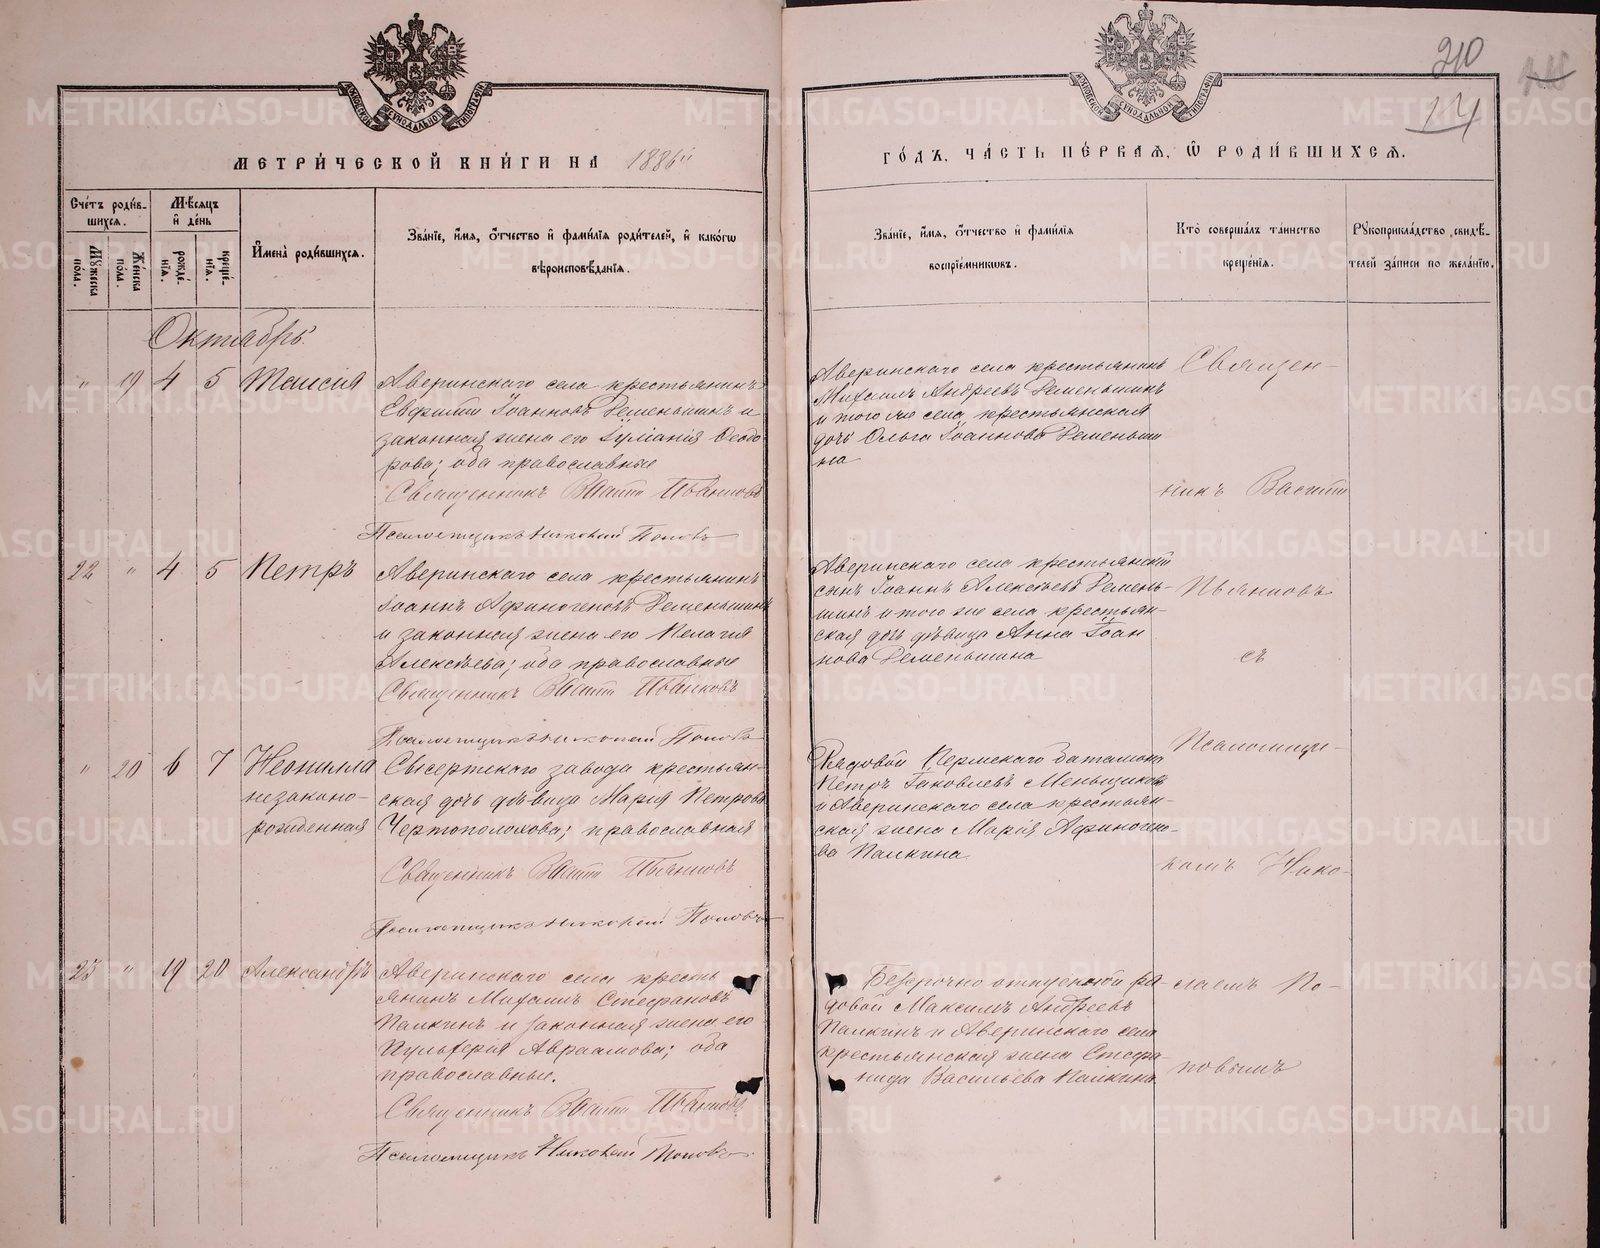 210
14
МЕТРИ́ЧЕСКОЙ КНИ́ГИ НА 1886й
ГО́ДЪ, ЧА́СТЬ ПЕ́РВАЯ, Ѡ РОДИ́ВШИХСЯ.
Сче́тъ роди́в-
шихся.
Му́жеска
пола.
Же́нска
пола.
Мѣ́сяцъ
и де́нь
рожде́-
нія.
креще́-
нія.
Имена̀ роди́вшихся.
Зва́ніе, и́мя, о́тчество и фами́лія роди́телей, и како́гѡ
вѣроисповѣ́данія.
Зва́ніе, и́мя, о́тчество и фами́лія
воспріе́мникѡвъ.
Кто̀ соверша́лъ та́инство
креще́нія.
Рꙋкоприкла́дство свидѣ́-
телей за́писи по жела́нію.
Октябрь.
" 19 4 5 Таисия
Аверинскаго села крестьянинъ
Іоанновъ Ременьшинъ и
законная жена его Іуліанія Ѳеодо-
рова; оба православные
Священникъ Ивановъ
Псаломщикъ Николай Поповъ
Аверинскаго села крестьянинъ
Михаилъ Андреевъ Ременьшинъ
и того же села крестьянская
дочь Ольга Іоаннова Ременьши
на
22 " 4 5 Петръ
Аверинскаго села крестьянинъ
Іоаннъ Афиногеновъ Ременьшинъ
и законная жена его Пелагия
Алексѣева; оба православные
Священникъ Ивановъ
Псаломщикъ Николай Поповъ
Аверинскаго села крестьянскій
сынъ Іоаннъ Алексѣевъ Ремень-
шинъ и того же села крестьян-
ская дочь дѣвица Анна Іоан
нова Ременьшина
" 20 6 7 Неонилла
незаконо-
рожденная
Сысертскаго завода крестьян-
ская дочь дѣвица Марія Петрова
Чертополохова; православная
Священникъ Ивановъ
Псаломщикъ Николай Поповъ
Рядовой Пермскаго баталіона
Петръ Іаковлевъ Меньщиковъ
и Аверинскаго села крестьян-
ская жена Марія Афиноге-
ва Палкина
19 20 Александръ
Аверинскаго села кресть
янинъ Михаилъ Стефановъ
Палкинъ и законная жена его
Пульхерія Авраамова; оба
православные.
Священникъ Ивановъ
Псаломщикъ Николай Поповъ
Безсрочно отпускной ря-
довой Максимъ Андреевъ
Палкинъ и Аверинскаго села
крестьянская жена Стефа-
нида Васильева Палкина
Священ-
никъ
Ивановъ
съ
Псаломщи-
комъ Нико-
лаемъ По-
повымъ
METRIKI.GASO-URAL.RU